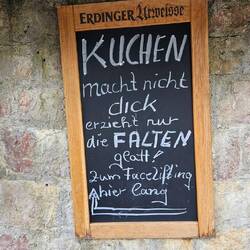 ERDINGER Urweisse
KUCHEN
macht nicht
dick
erzieht nur
die FALTEN
glatt!
Zum Facelifting
hier lang